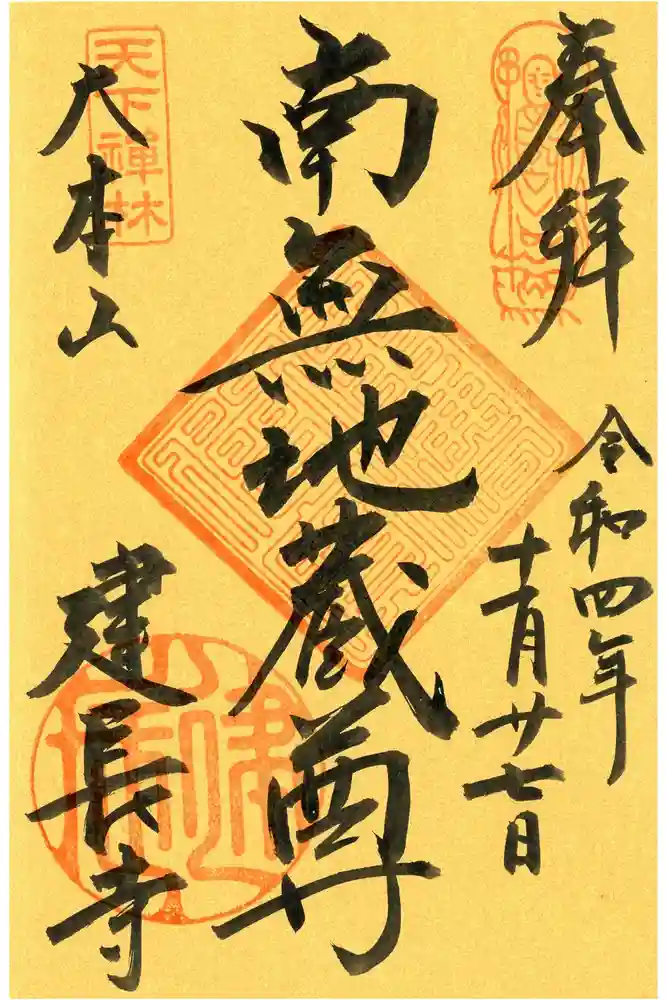 奉拜
令和四年
十一月廿七日
南無地蔵尊
天下禅林
大本山
建長寺